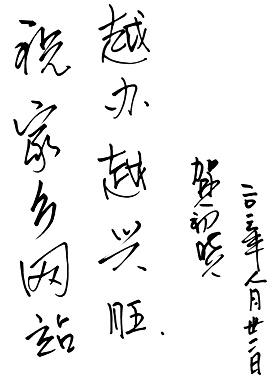 祝家乡网站
越办越兴旺.
贺一初
二〇一三年八月廿二日